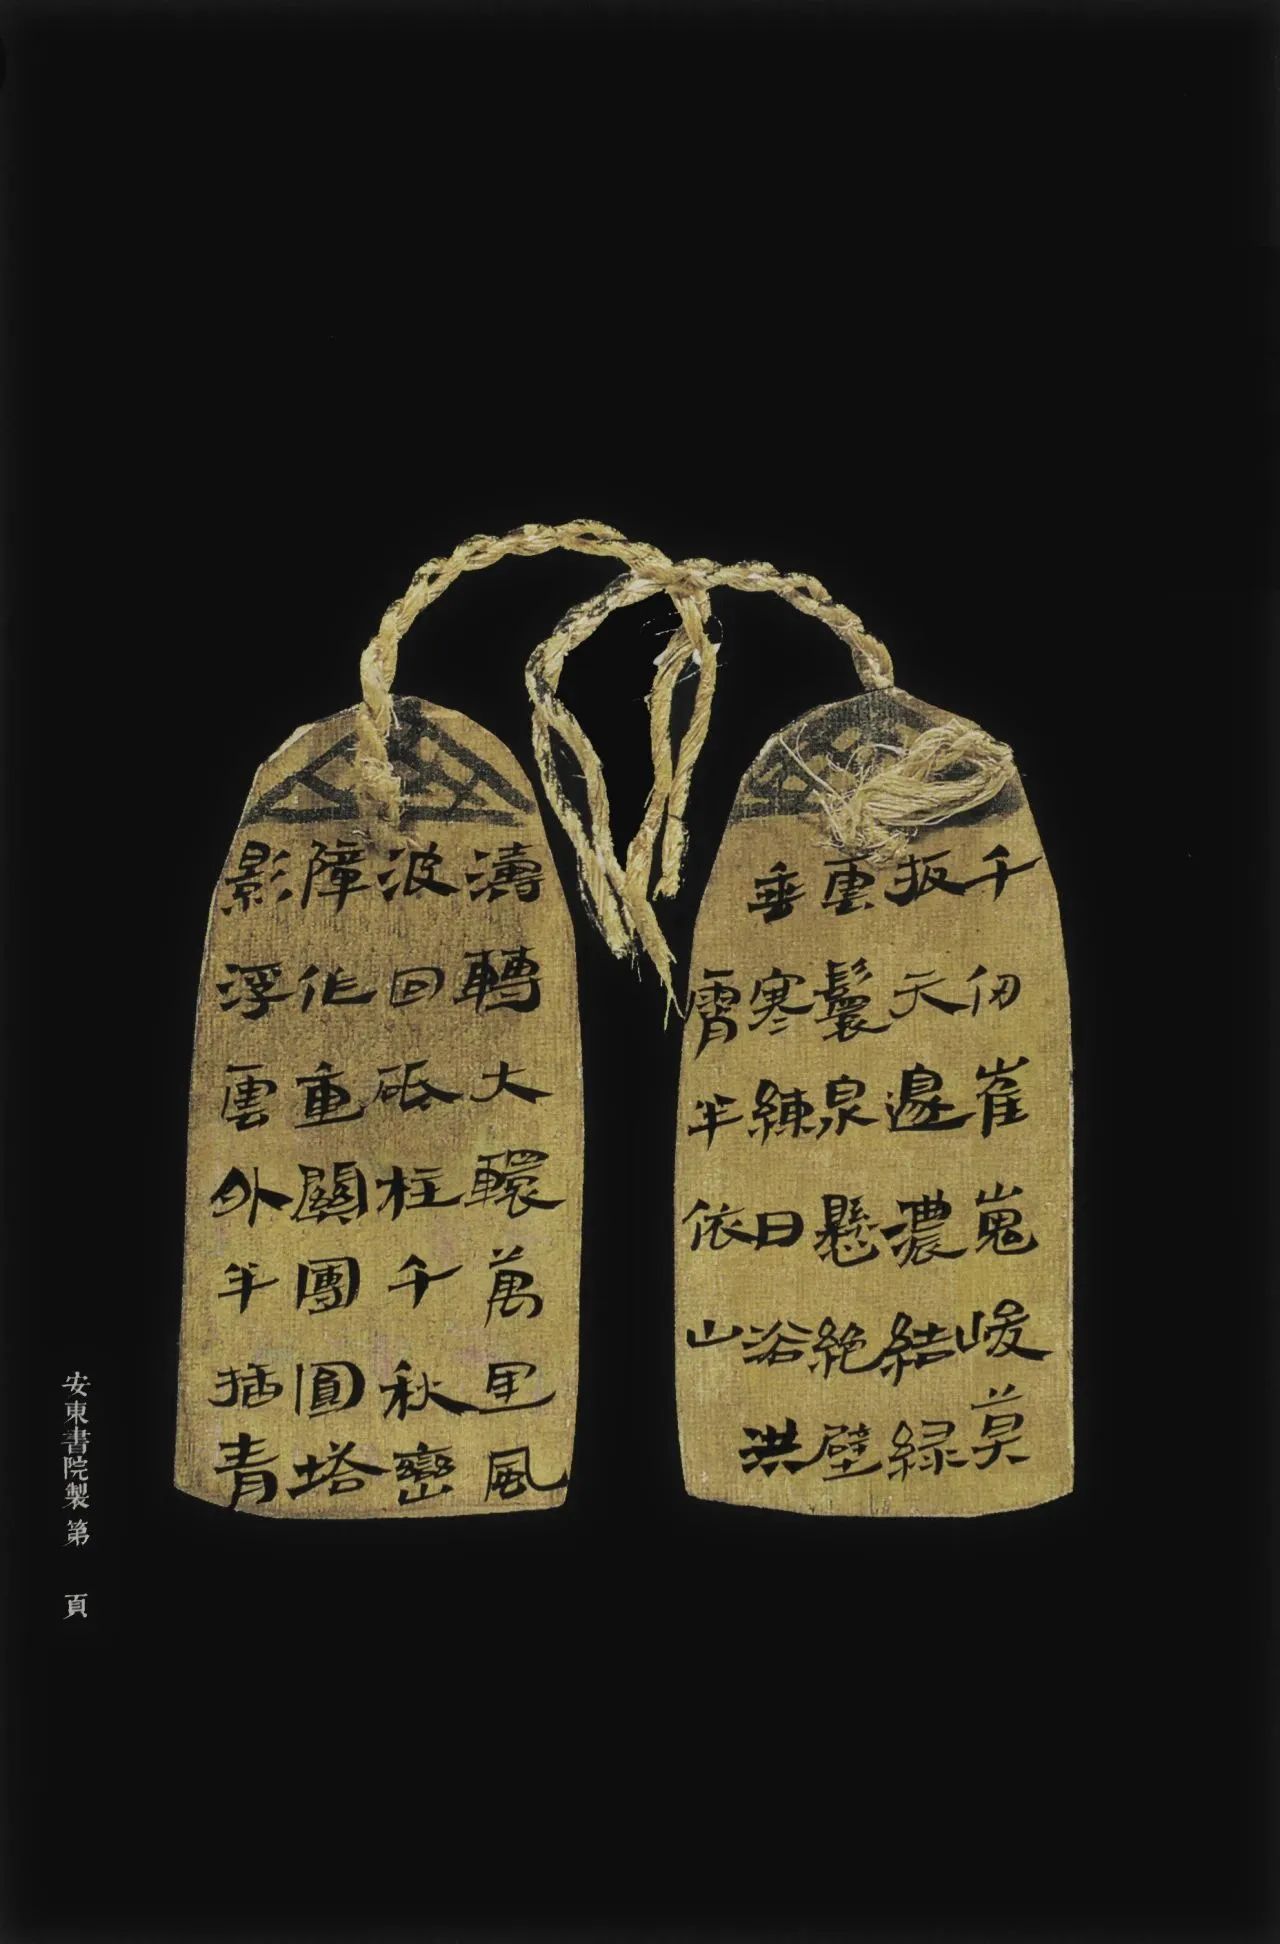 千仞崔嵬峻莫
扳天邊濃結緑
雲鬟泉懸絶壁
垂寒練日浴洪
霄半依山
濤轉大轘萬里風
波回砥柱千秋巒
障作重關團圓塔
影浮雲外半插青
安東書院製第 頁